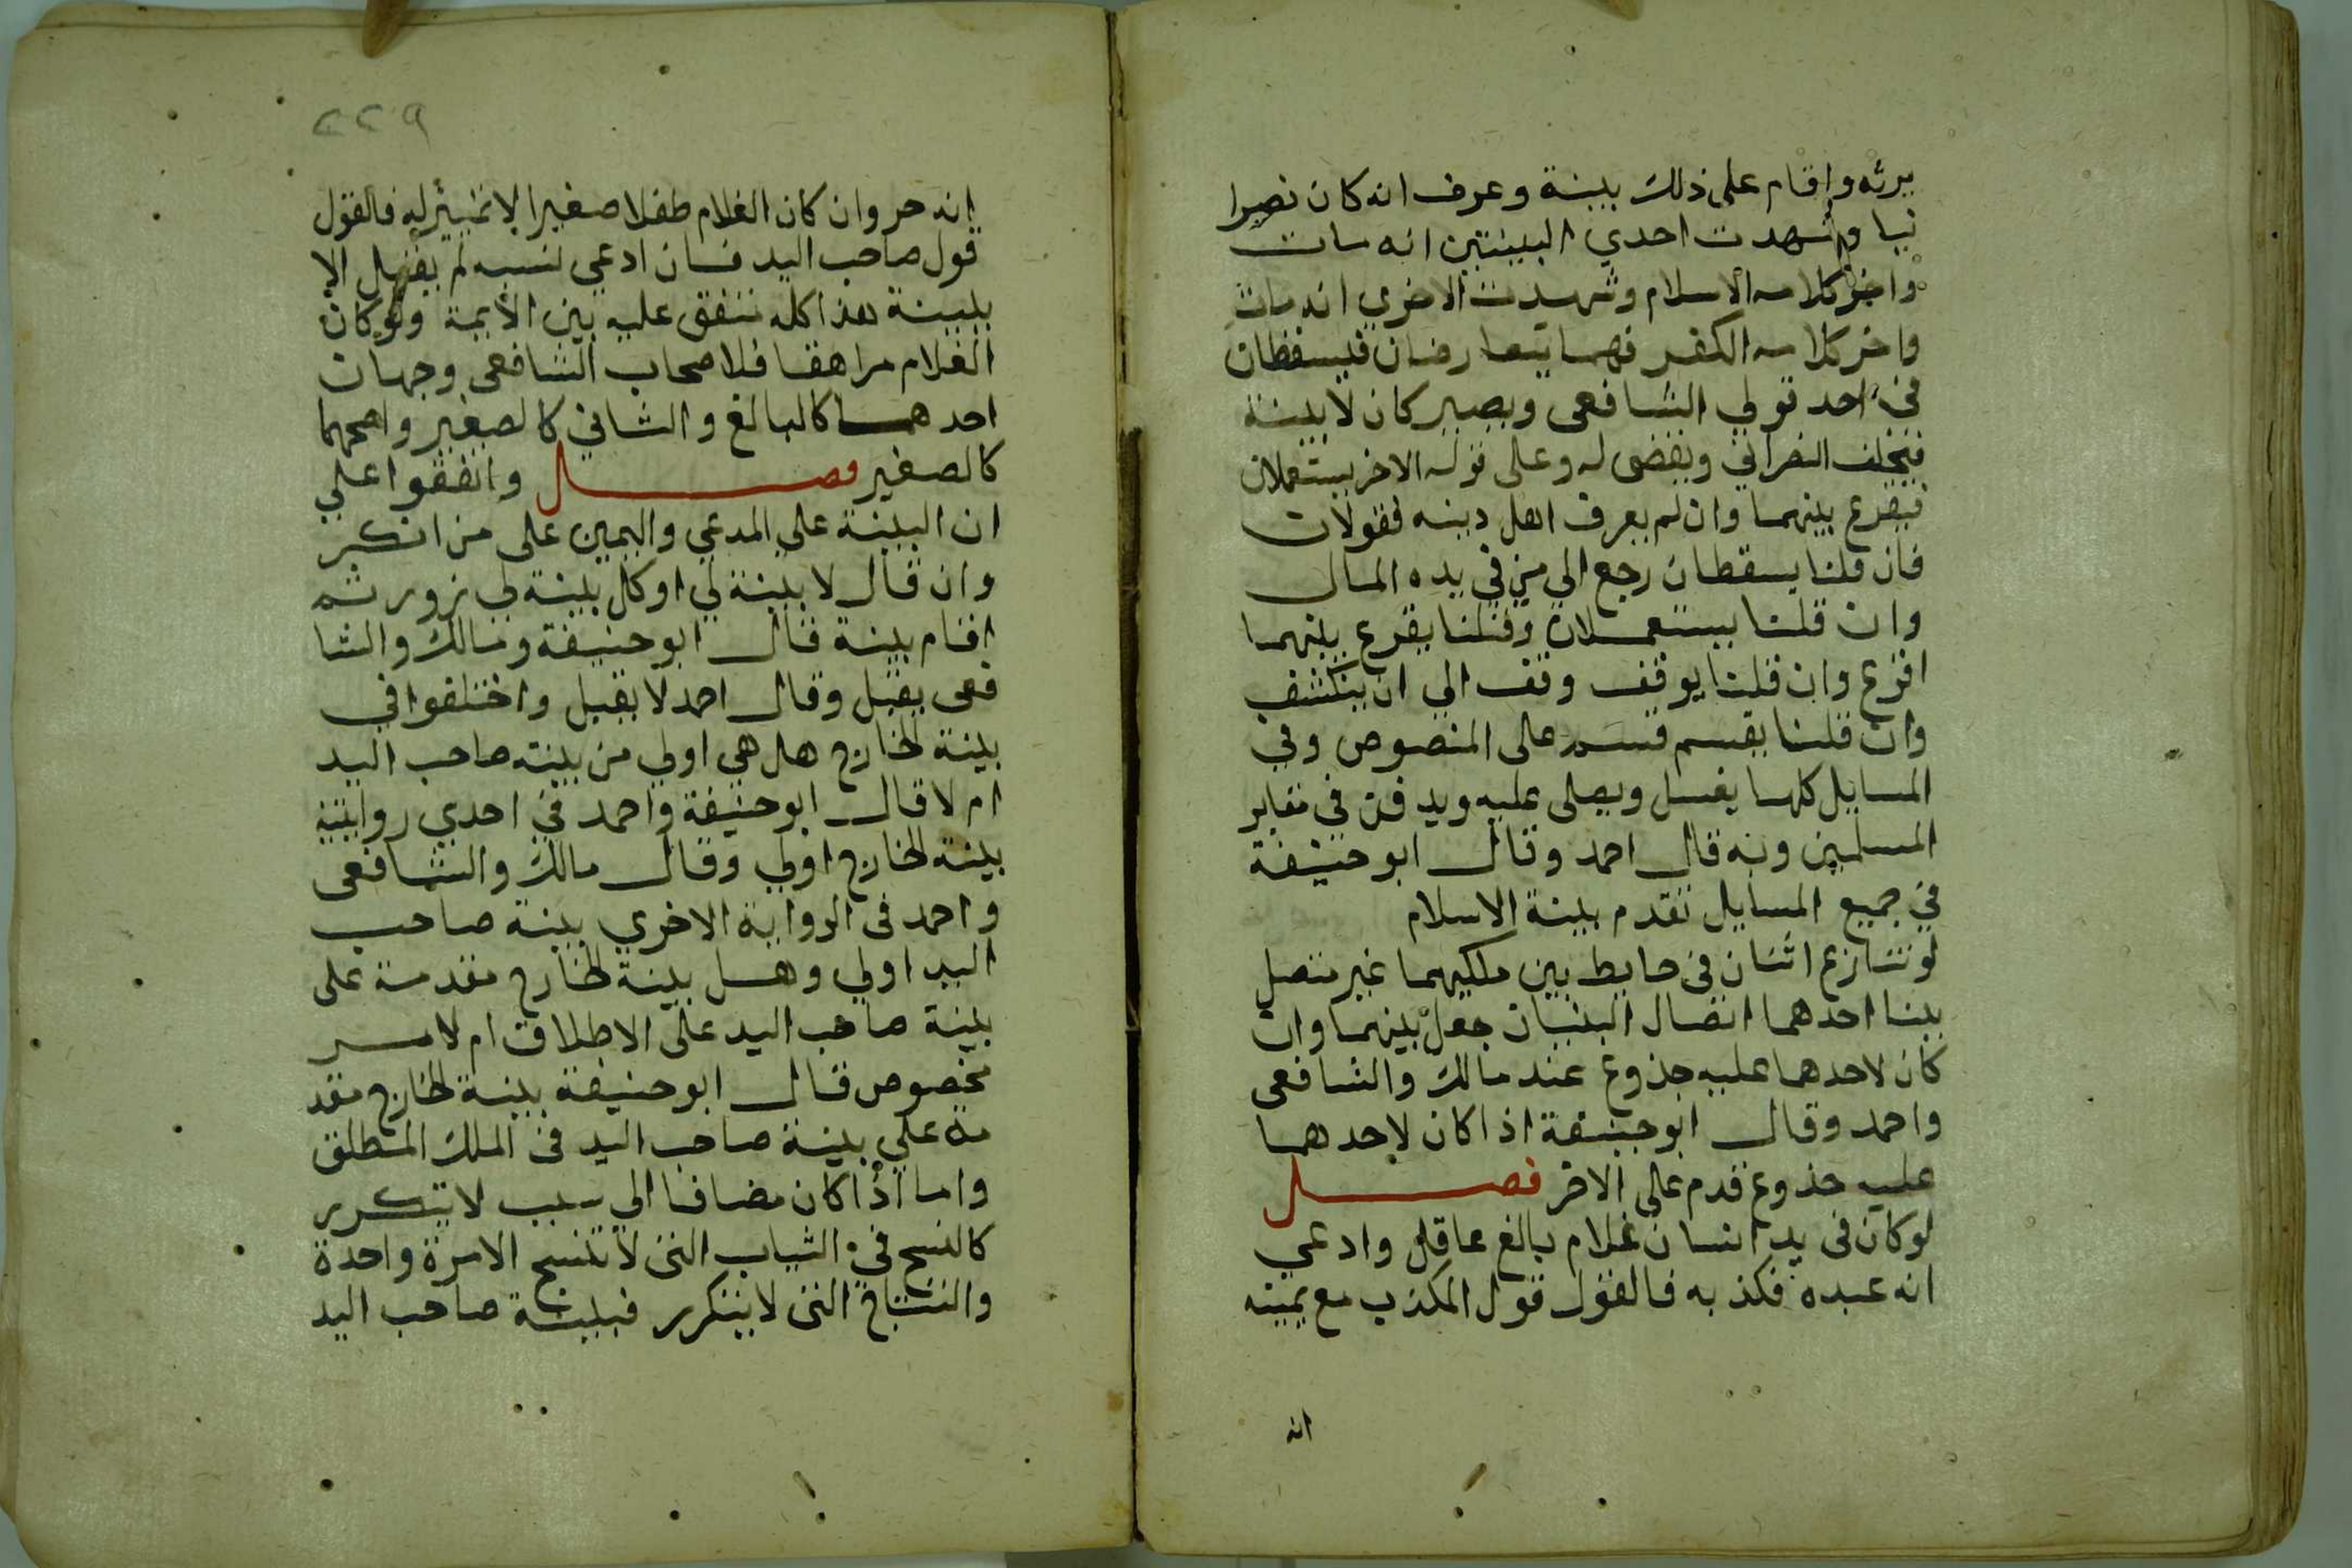 يرثه واقام على ذلك بينة وعرف انه كان نصرا
نيا وشهدت احدي البينتين انه مات
واخر كلامه الاسلام وشهدت الاخري انه مات
واخر كلامه الكفر فهما يتعارضان فيسقطان
في احد قولي الشافعي ويصير كان لا بينة
فيحلف النصراني ويقضى له وعلى قوله الاخر يستعملان
فيقرع بينهما وان لم يعرف اهل دينه فقولان
فان قلنا يسقطان رجع الي من في يده المال
وان قلنا يستعملان وقلنا يقرع بينهما
اقرع وان قلنا يوقف وقف الي ان ينكشف
وان قلنا يقسم قسم على المنصوص وفي
المسايل كلها يغسل ويصلى عليه ويدفن في مقابر
المسلمين وبه قال احمد وقال ابو حنيفة
في جميع المسايل تقدم بينة الاسلام
لو تنازع اثنان في حايط بين ملكيهما غير متصل
ببنا احدهما اتصال البنيان جعل بينهما وان
كان لاحدهما عليه جذوع عند مالك والشافعى
واحمد وقال ابو حنيفة اذا كان لاحدهما
عليه جذوع قدم على الاخر فصل
لو كان فى يد انسان غلام بالغ عاقل وادعي
انه عبده فكذبه فالقول قول المكذب مع يمينه
انه
٢٢٩
انه حر وان كان الغلام طفلا صغيرا لا تمييز له فالقول
قول صاحب اليد فان ادعي نسبه لم يقبل الا
ببينة هذا كله متفق عليه بين الأيمة ولو كان
الغلام مراهقا فلاصحاب الشافعى وجهان
احدهما كالبالغ والثاني كالصغير واصحهما
كالصغير فصل واتفقوا علي
ان البينة علي المدعي واليمين على من انكر
وان قال لا بينة لي او كل بينة لي زور ثم
اقام بينة قال ابو حنيفة ومالك والشا
فعى يقبل وقال احمد لا يقبل واختلفوا في
بينة الخارج هل هي اولي من بينة صاحب اليد
ام لا قال ابو حنيفة واحمد في احدي روايتيه
بينة الخارج اولي وقال مالك والشافعى
واحمد فى الرواية الاخري بينة صاحب
اليد اولي وهل بينة الخارج مقدمة على
بينة صاحب اليد على الاطلاق ام لامر
مخصوص قال ابو حنيفة بينة الخارج مقد
مة علي بينة صاحب اليد فى الملك المطلق
واما اذا كان مضافا الي سبب لا يتكرر
كالنسج في الثياب التى لا تنسج الا مرة واحدة
والنتاج التى لا يتكرر فبينة صاحب اليد